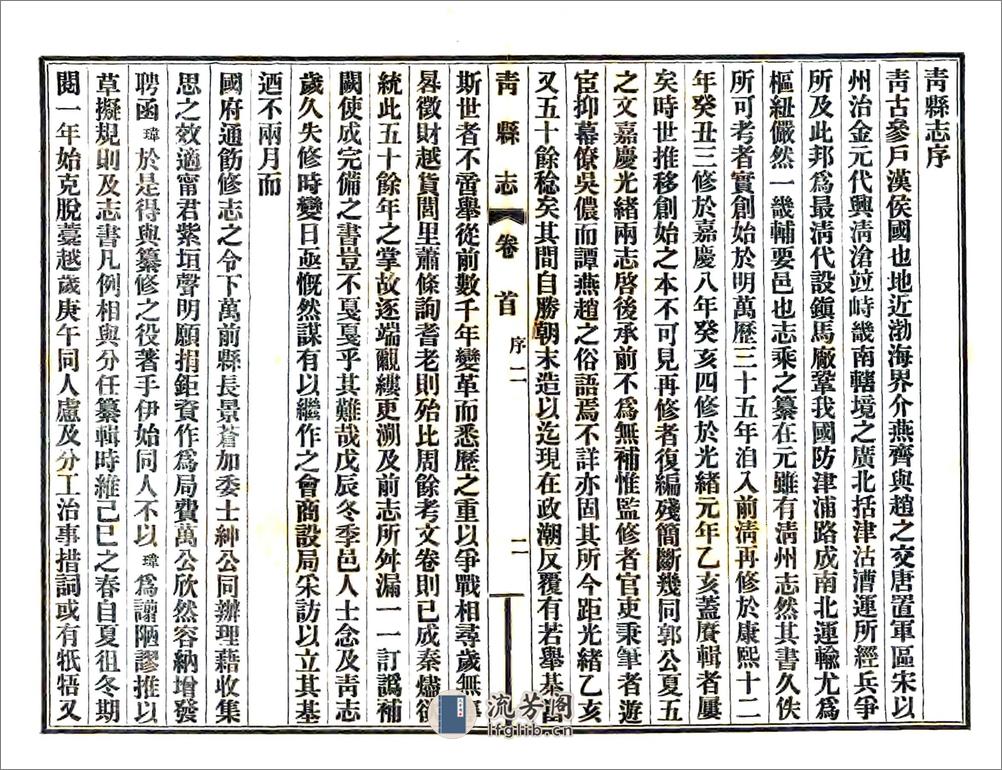 靑縣志序
靑古參戶漢侯國也地近渤海界介燕齊與趙之交唐置軍區宋以
州治金元代興淸滄竝峙畿南轄境之廣北括津沽漕運所經兵爭
所及此邦爲最淸代設鎭馬廠鞏我國防津浦路成南北運輸尤爲
樞紐儼然一畿輔要邑也志乘之纂在元雖有淸州志然其書久佚
所可考者實創始於明萬歷三十五年洎入前淸再修於康熙十二
年癸丑三修於嘉慶八年癸亥四修於光緒元年乙亥蓋賡輯者屢
矣時世推移創始之本不可見再修者復編殘簡斷幾同郭公夏五
之文嘉慶光緒兩志啓後承前不爲無補惟監修者官吏秉筆者遊
宦抑幕僚吳儂而譚燕趙之俗語焉不詳亦固其所今距光緒乙亥
又五十餘稔矣其間自勝朝末造以迄現在政潮反覆有若舉棊
靑縣志 卷首 序二 二
斯世者不啻舉從前數千年變革而悉歷之重以爭戰相尋歲無
晷徵財越貨閭里蕭條詢耆老則殆比周餘考文卷則已成秦燼欲
統此五十餘年之掌故逐端覼縷更溯及前志所舛漏一一訂譌補
闕使成完備之書豈不戛戛乎其難哉戊辰冬季邑人士念及靑志
歲久失修時變日亟慨然謀有以繼作之會商設局采訪以立其基
迺不兩月而
國府通飭修志之令下萬前縣長景蒼加委士紳公同辦理藉收集
思之效適甯君紫垣聲明願捐鉅資作爲局費萬公欣然容納增發
聘函瑋於是得與纂修之役著手伊始同人不以瑋爲譾陋謬推以
草擬規則及志書凡例相與分任纂輯時維己巳之春自夏徂冬期
閱一年始克脫藁越歲庚午同人慮及分工治事措詞或有牴牾又
流芳阁
lfglib.cn